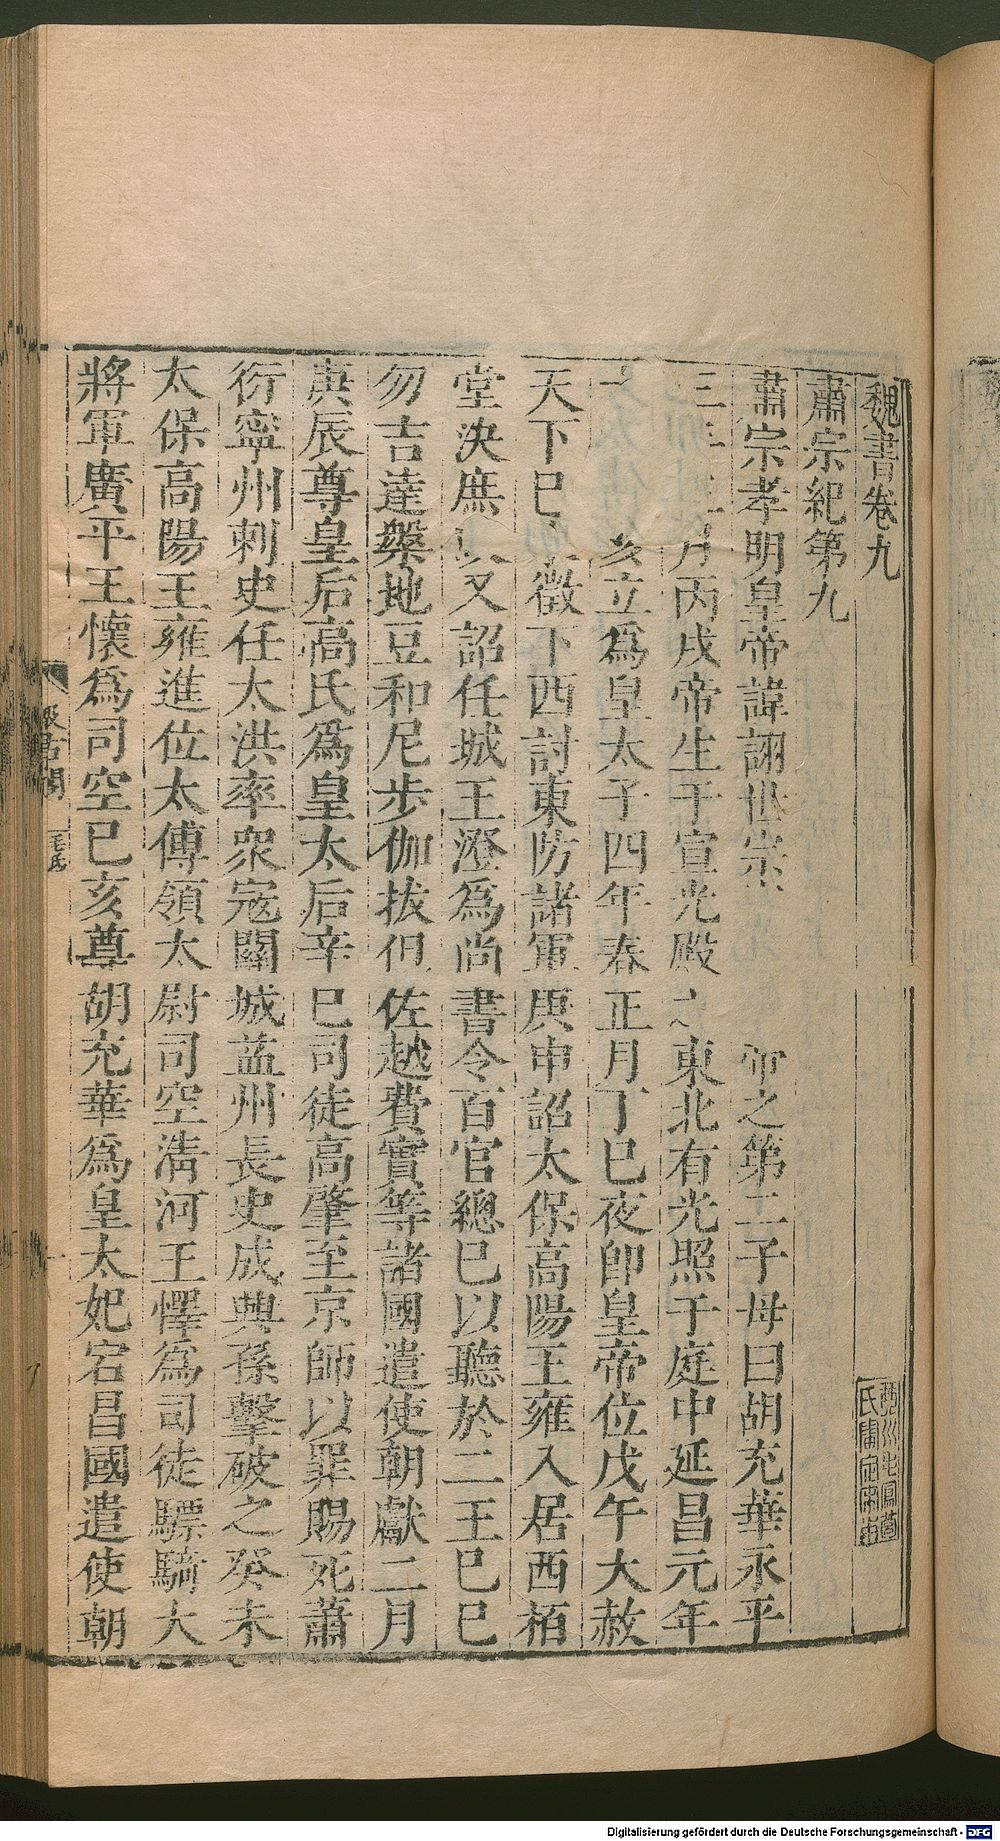 魏書卷九
肅宗紀第九
肅宗孝明皇帝諱詡世宗帝之第二子母曰胡充華永平
三月丙戌帝生于宣光殿之東北有光照于庭中延昌元年
十亥立爲皇太子四年春正月丁巳夜即皇帝位戊午大赦
天下己徵下西討東防諸軍庚申詔太保高陽王雍入居西栢
堂決庶又詔任城王澄爲尚書令百官總已以聽於二王己巳
勿吉達槃地豆和尼步伽拔但佐越費實等諸國遣使朝獻二月
庚辰尊皇后高氏爲皇太后辛巳司徒高肇至京師以罪賜死蕭
衍寧州刺史任太洪率衆寇關城益州長史成興孫擊破之癸未
太保高陽王雍進位太傅領太尉司空清河王懌爲司徒驃騎大
將軍廣平王懷爲司空已亥尊胡充華爲皇太妃宕昌國遣使朝
毛氏